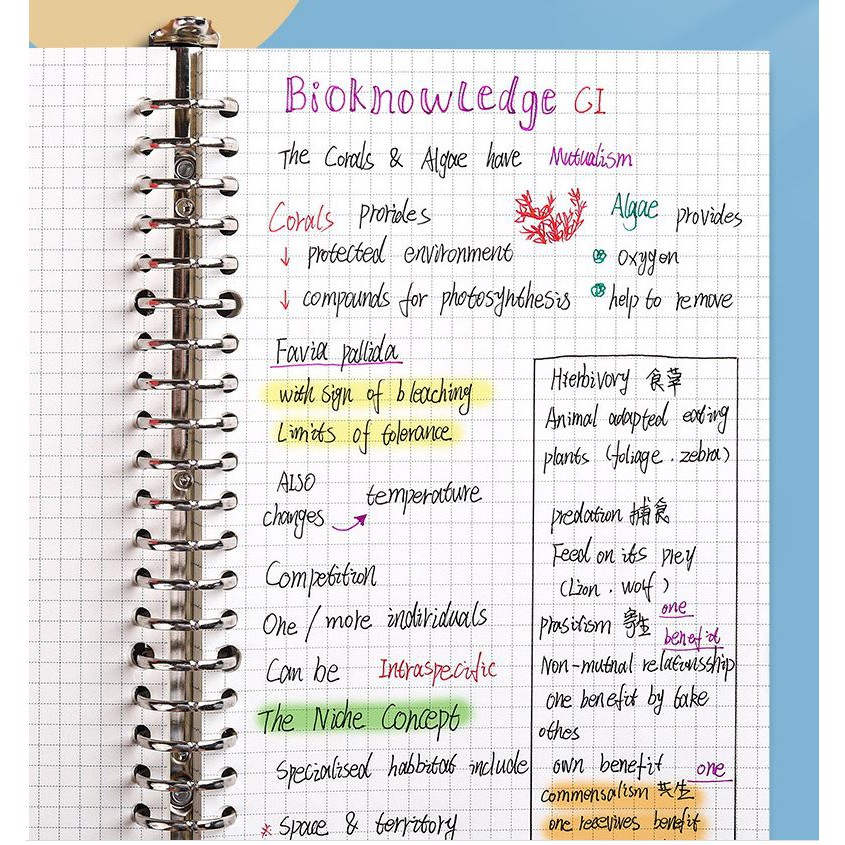 Bioknowledge GI
The Corals & Algae have Mutualism
Corals prorides
↓ protected environment
↓ compounds for photosynthesis
Algae provides
oxygen
help to remove
Favia pallida
with sign of bleaching
Limits of tolerance
Also changes → temperature
Competition
One / more individuals
Can be Intraspecific
The Niche Concept
Specialised habbitat include
* Space & territory
Hrerbivory 食草
Animal adapted eating
plants (foliage . zebra)
predation 捕食
Feed on its prey
(Lion . wolf)
prasitism 寄生 one
benefit
Non-mutnal relationsship
one benefit by take
othes
own benefit one
commonsalism 共生
one receives benefit